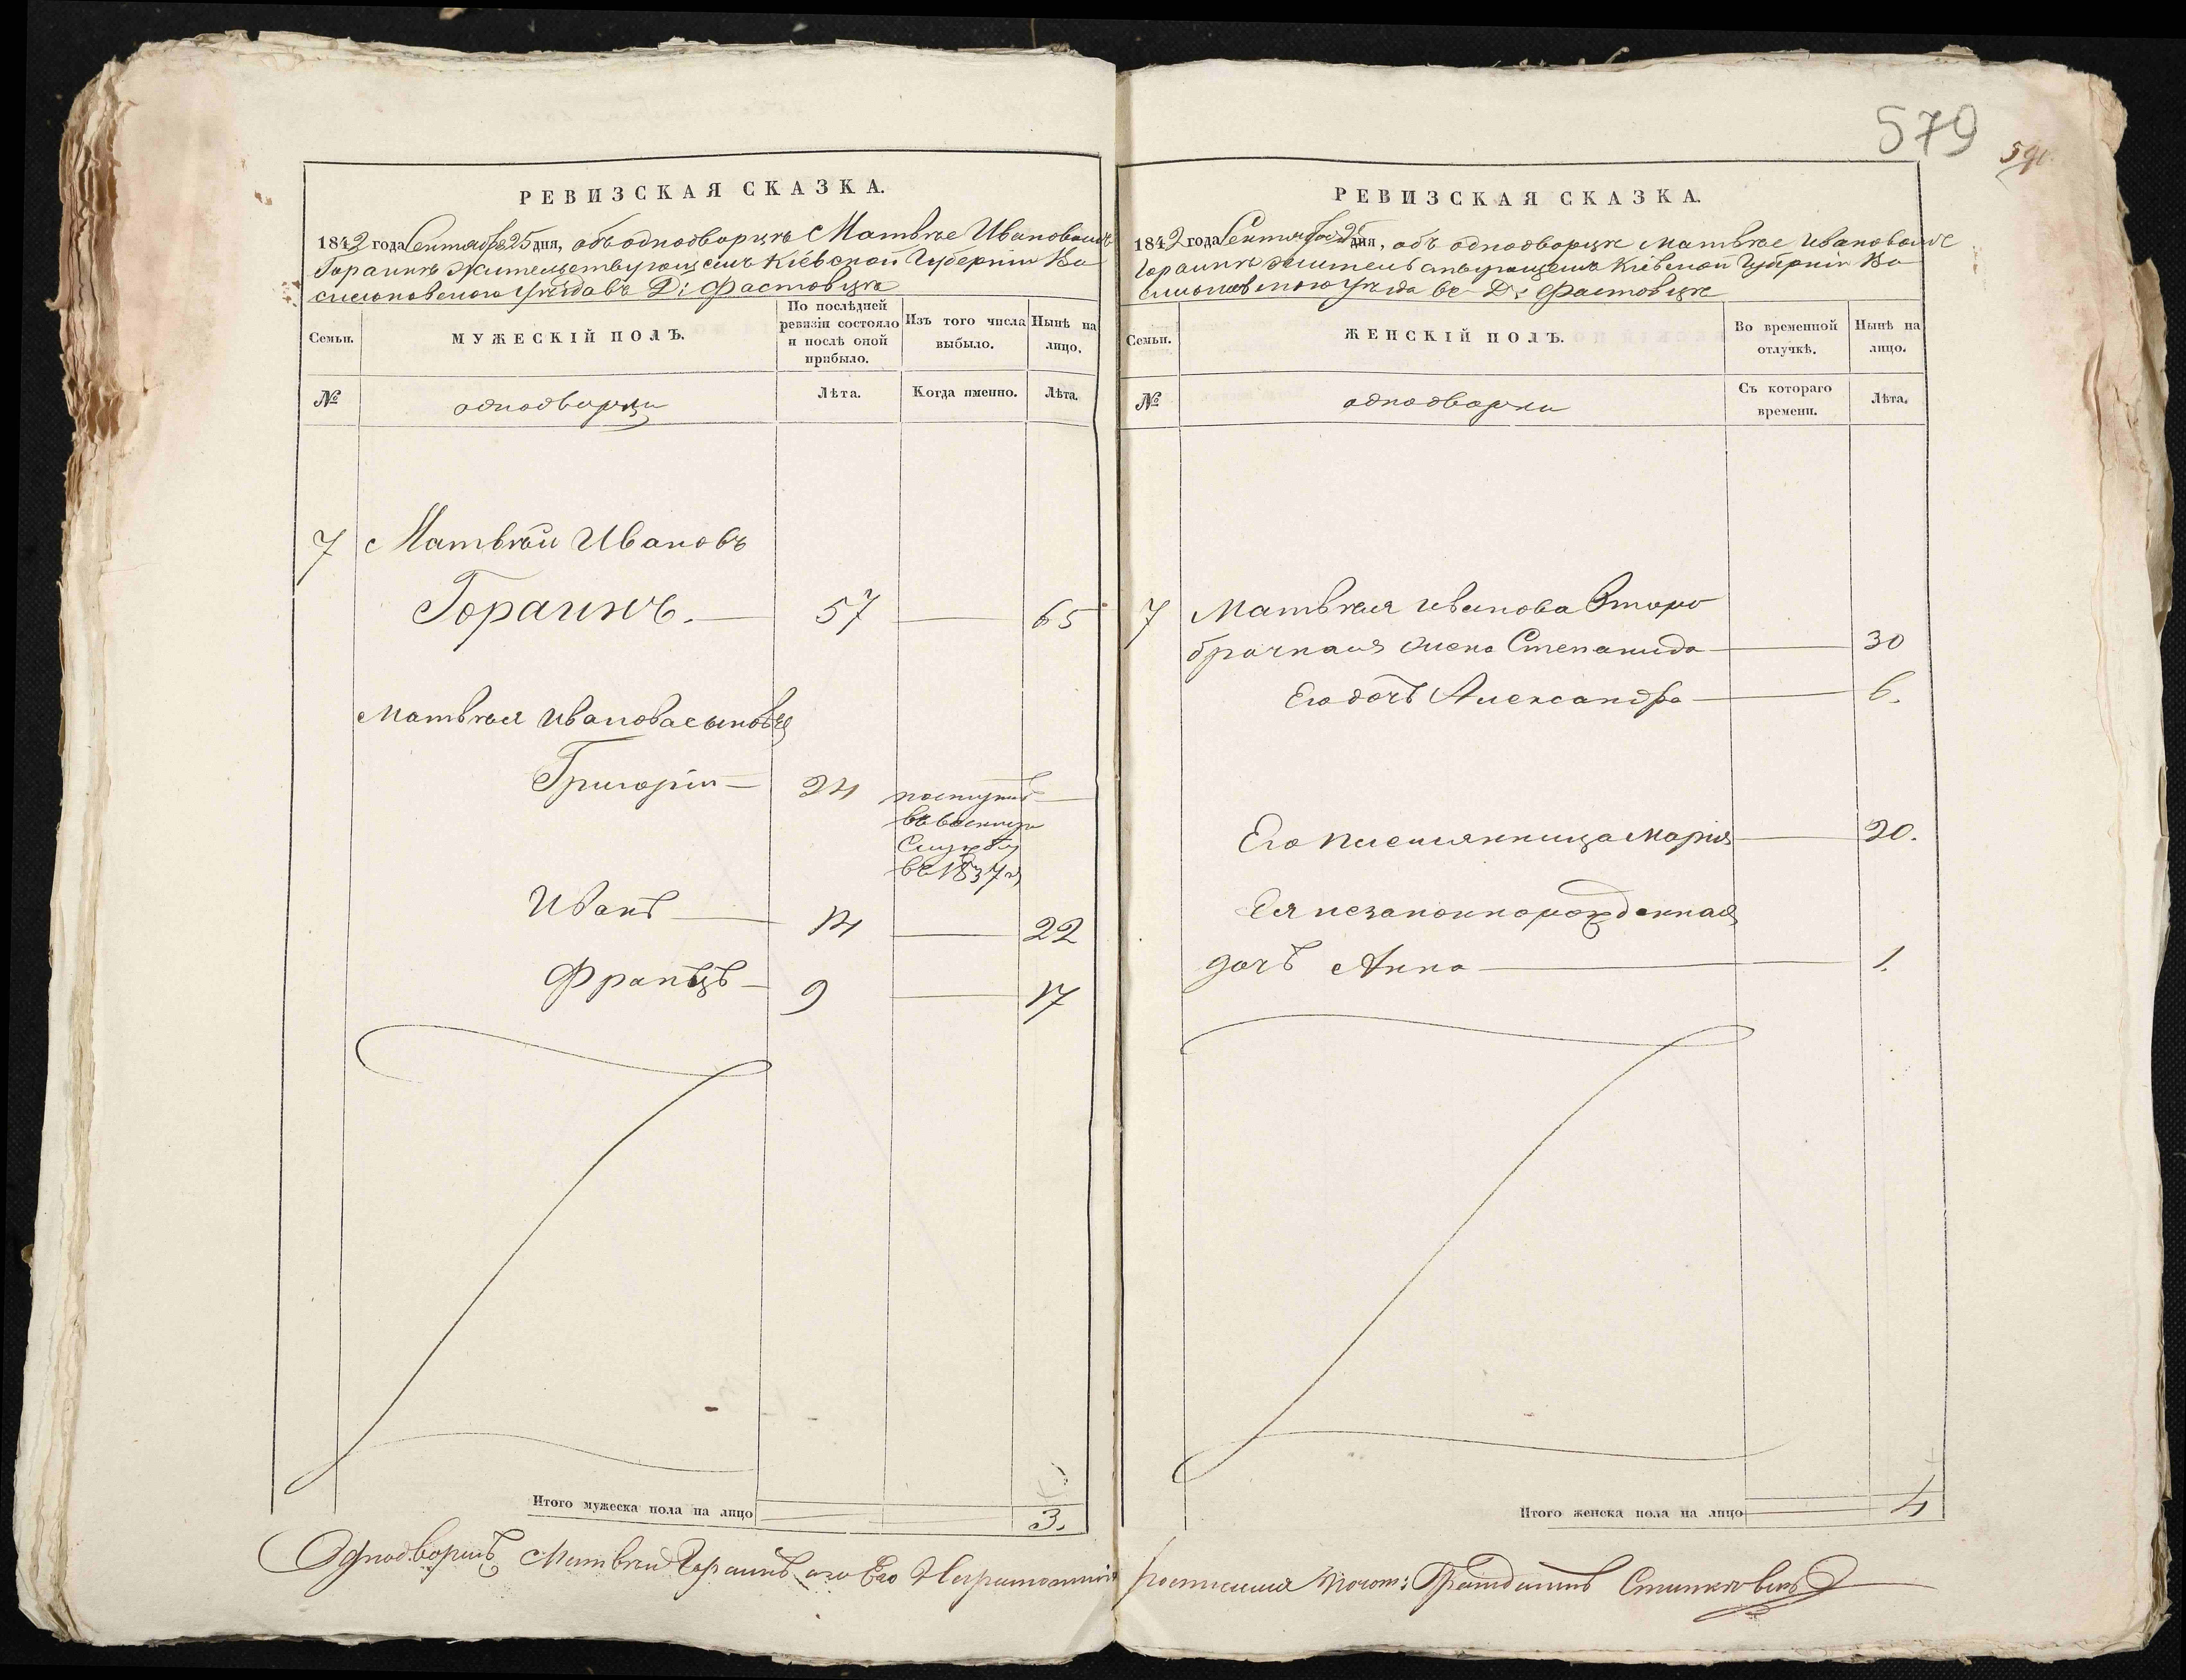 579
590.
РЕВИЗСКАЯ СКАЗКА.
1842 года Сентября 25 дня, объ однодворцѣ Матвѣе Ивановомъ
Горашкѣ жительствующемъ Кіевской Губерніи Ва
сильковского уѣзда въ Д: Фастовцѣ
Семьи.
МУЖЕСКІЙ ПОЛЪ.
По послѣдней ревизіи состояло и послѣ оной прибыло.
Изъ того числа выбыло.
Нынѣ на лицо.
№
однодворци
Лѣта.
Когда именно.
Лѣта.
7 Матвѣй Ивановъ
57 65
Матвѣя Иванова сыновья
Григорій 24 поступилъ
въ воениую
Службу
въ 1837 г
Иванъ 14 22
Францъ 9 17
Итого мужеска пола на лицо 3.
Однодворецъ Матвей
РЕВИЗСКАЯ СКАЗКА.
1842 года Сентября 25 дня, объ однодворце Матвѣе Ивановомъ
жительствующемъ Кіевской Губерніи Ва
сильковского уѣзда въ Д: Фастовцѣ
Семьи.
ЖЕНСКІЙ ПОЛЪ.
Во временной отлучкѣ.
Нынѣ на лицо.
№
однодворки
Съ котораго времени.
Лѣта.
7 Матвѣя Иванова Второ
брачная жена Степанида 30
Его дочь Александра 6.
Его племянница Марія 20.
Ея незаконнорожденная
дочь Анна 1.
Итого женска пола на лицо 4